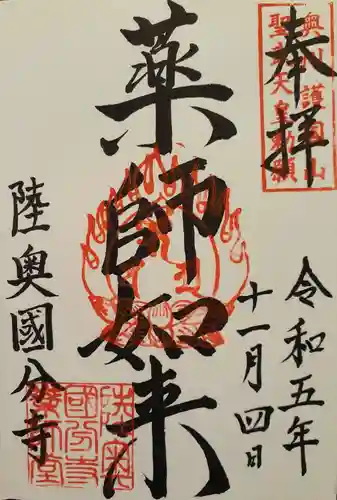 奉拝
令和五年
十一月四日
薬師如来
陸奥國分寺
聖武天皇勅願
陸奥
國分寺